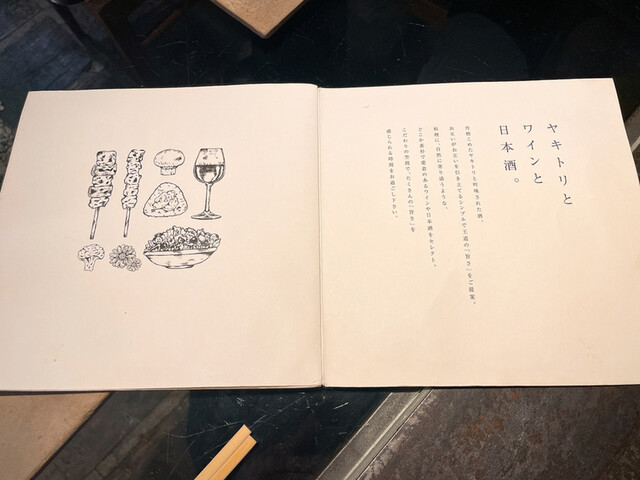 ヤキトリと
ワインと
日本酒。
丹精こめたヤキトリと吟味された酒。
お互いがお互いを引き立てるシンプルで王道の「旨さ」をご提案。
料理に、自然に寄り添うような、
どこか素朴で愛着のあるワインや日本酒をセレクト。
こだわりの空間で、たくさんの「旨さ」を
感じられる時間をお過ごし下さい。